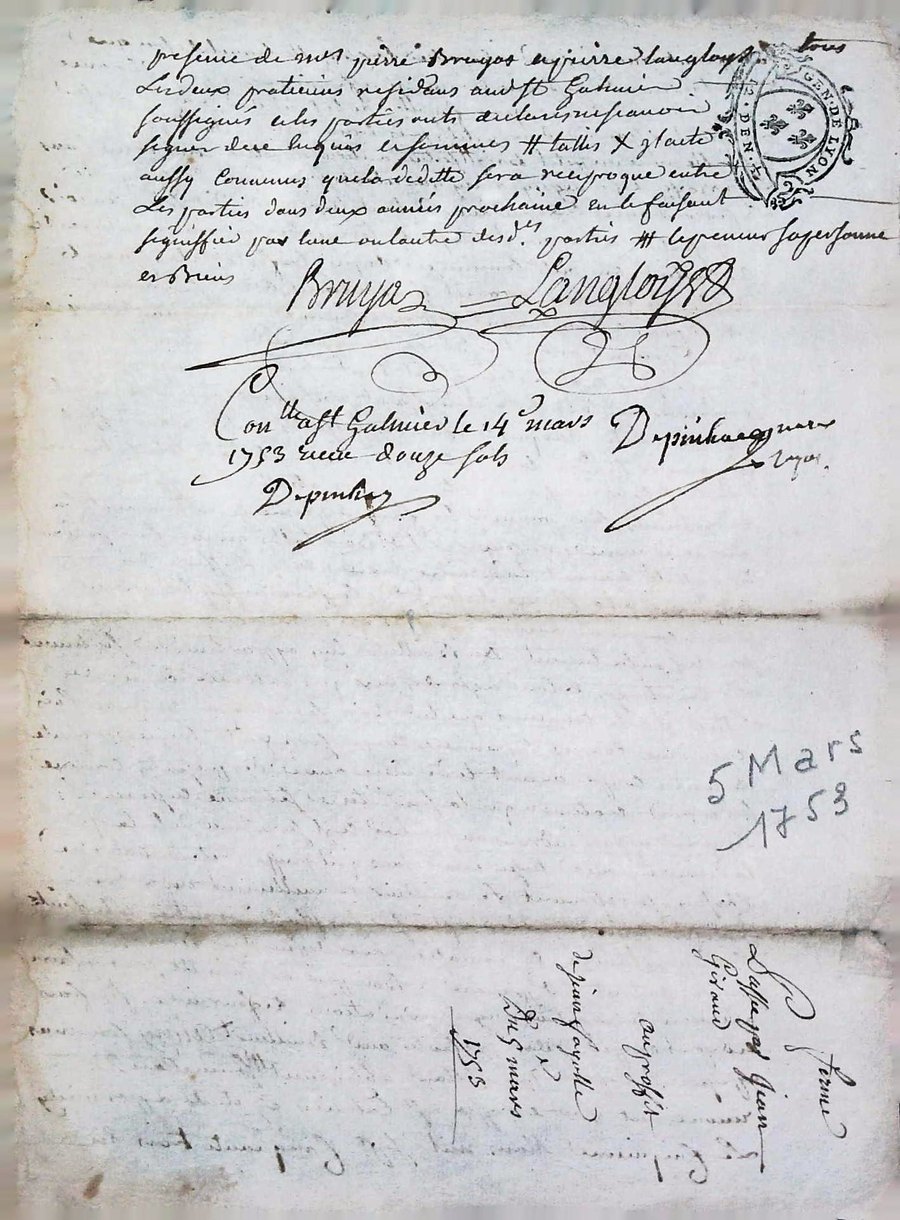 presence de mrs pierre Bruyas et pierre langloys tous
Les deux praticiens residans audit St Galmier
soussignés et les parties ont declaré ne scavoir
signer de ce enquis et sommés # tallis X
aussy Convenus que la deditte sera reciproque entre
Les parties dans deux années prochaine en le faisant
signiffier par lune ou lautre desd.ts parties # le preneur sa personne
et Biens
GEN. DE LYON
2. DEN. 4
Bruyas Langloys
Conlle a St Galmier le 14e mars
1753 recu douze sols
Depinhac
Depinhac
5 Mars
1753
ferme
Passé par Jean
Giraud
au proffit
de jean fayolle
Du 5 mars
1753